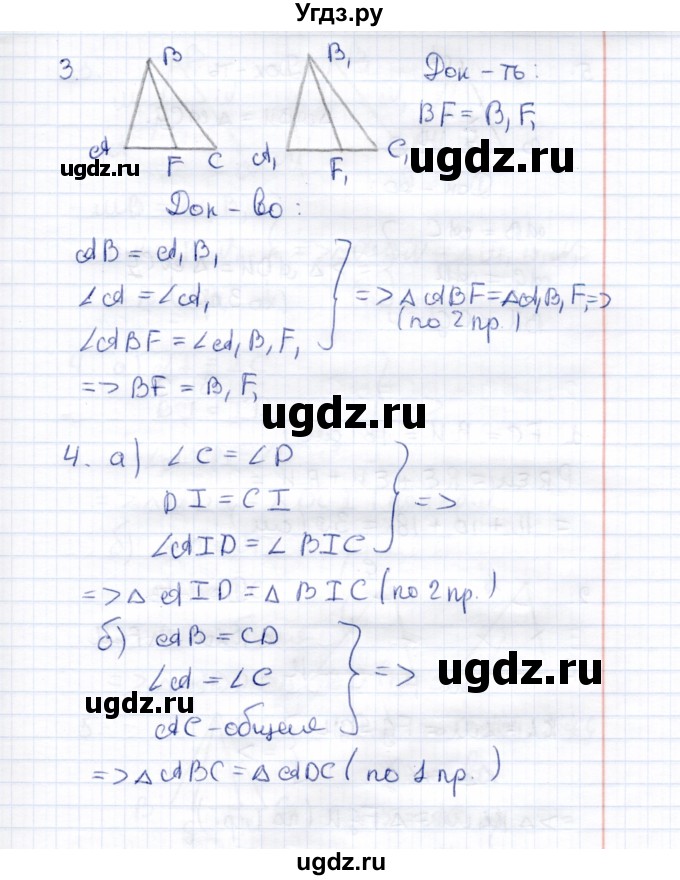 Угдз.ру
3.
B
B₁
Док-ть:
BF = B₁F₁
A
F
C
A₁
F₁
C₁
ugdz.ru
ugdz.ru
Док-во:
AB = A₁B₁
∠A = ∠A₁
∠ABF = ∠A₁B₁F₁
=> △ABF = △A₁B₁F₁ =>
(по 2 пр.)
=> BF = B₁F₁
ugdz.ru
4. а) ∠C = ∠D
DI = CI
∠AID = ∠BIC
=>
=> △AID = △BIC (по 2 пр.)
б) AB = CD
∠A = ∠C
AC - общая
=>
ugdz.ru
ugdz.ru
=> △ABC = △ADC (по 1 пр.)
ugdz.ru